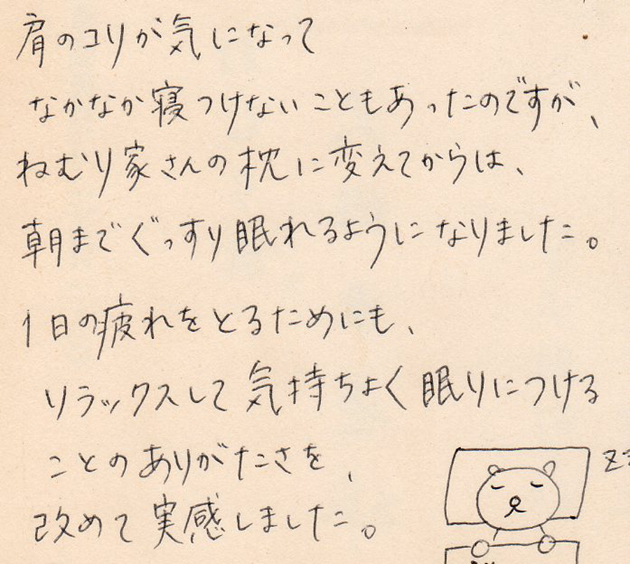 肩のコリが気になって
なかなか寝つけないこともあったのですが、
ねむり家さんの枕に変えてからは、
朝までぐっすり眠れるようになりました。
1日の疲れをとるためにも、
リラックスして気持ちよく眠りにつける
ことのありがたさを、
改めて実感しました。